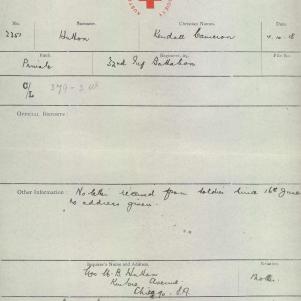 No. Surname. Christian Names. Date.
Hutton Kendall Cameron 4.10.18
Rank. Regiment, &c. File No.
Private 32nd Inf Battalion
C/
379
OFFICIAL REPORTS:
Other Information: No letter received from soldier since 16th June
No address given.
Inquirer's Name and Address. Relation.
H. B. Hutton Mother
Avenue
S.A.